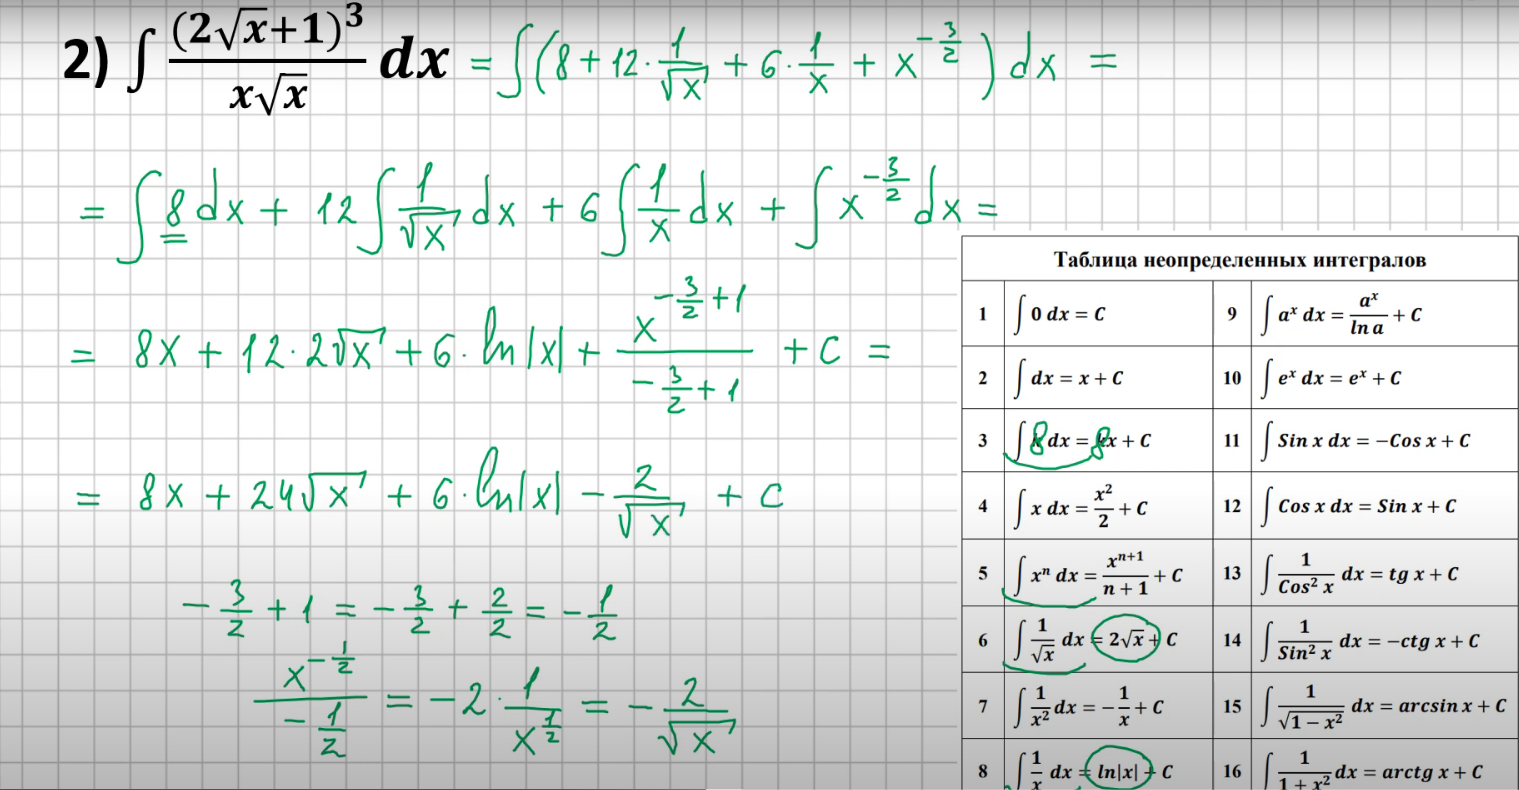 2) ∫ (2√x+1)³ / x√x dx = ∫(8 + 12 · 1/√x + 6 · 1/x + x^(-3/2)) dx =
= ∫ 8 dx + 12 ∫ 1/√x dx + 6 ∫ 1/x dx + ∫ x^(-3/2) dx =
= 8x + 12 · 2√x + 6 · ln|x| + x^(-3/2+1) / (-3/2+1) + C =
= 8x + 24√x + 6 · ln|x| - 2/√x + C
-3/2 + 1 = -3/2 + 2/2 = -1/2
x^(-1/2) / (-1/2) = -2 · 1/x^(1/2) = -2/√x
Таблица неопределенных интегралов
1 ∫ 0 dx = C 9 ∫ aˣ dx = aˣ/ln a + C
2 ∫ dx = x + C 10 ∫ eˣ dx = eˣ + C
3 ∫ 8 dx = 8x + C 11 ∫ Sin x dx = −Cos x + C
4 ∫ x dx = x²/2 + C 12 ∫ Cos x dx = Sin x + C
5 ∫ xⁿ dx = xⁿ⁺¹/(n + 1) + C 13 ∫ 1/Cos² x dx = tg x + C
6 ∫ 1/√x dx = 2√x + C 14 ∫ 1/Sin² x dx = −ctg x + C
7 ∫ 1/x² dx = −1/x + C 15 ∫ 1/√(1 − x²) dx = arcsin x + C
8 ∫ 1/x dx = ln|x| + C 16 ∫ 1/(1 + x²) dx = arctg x + C